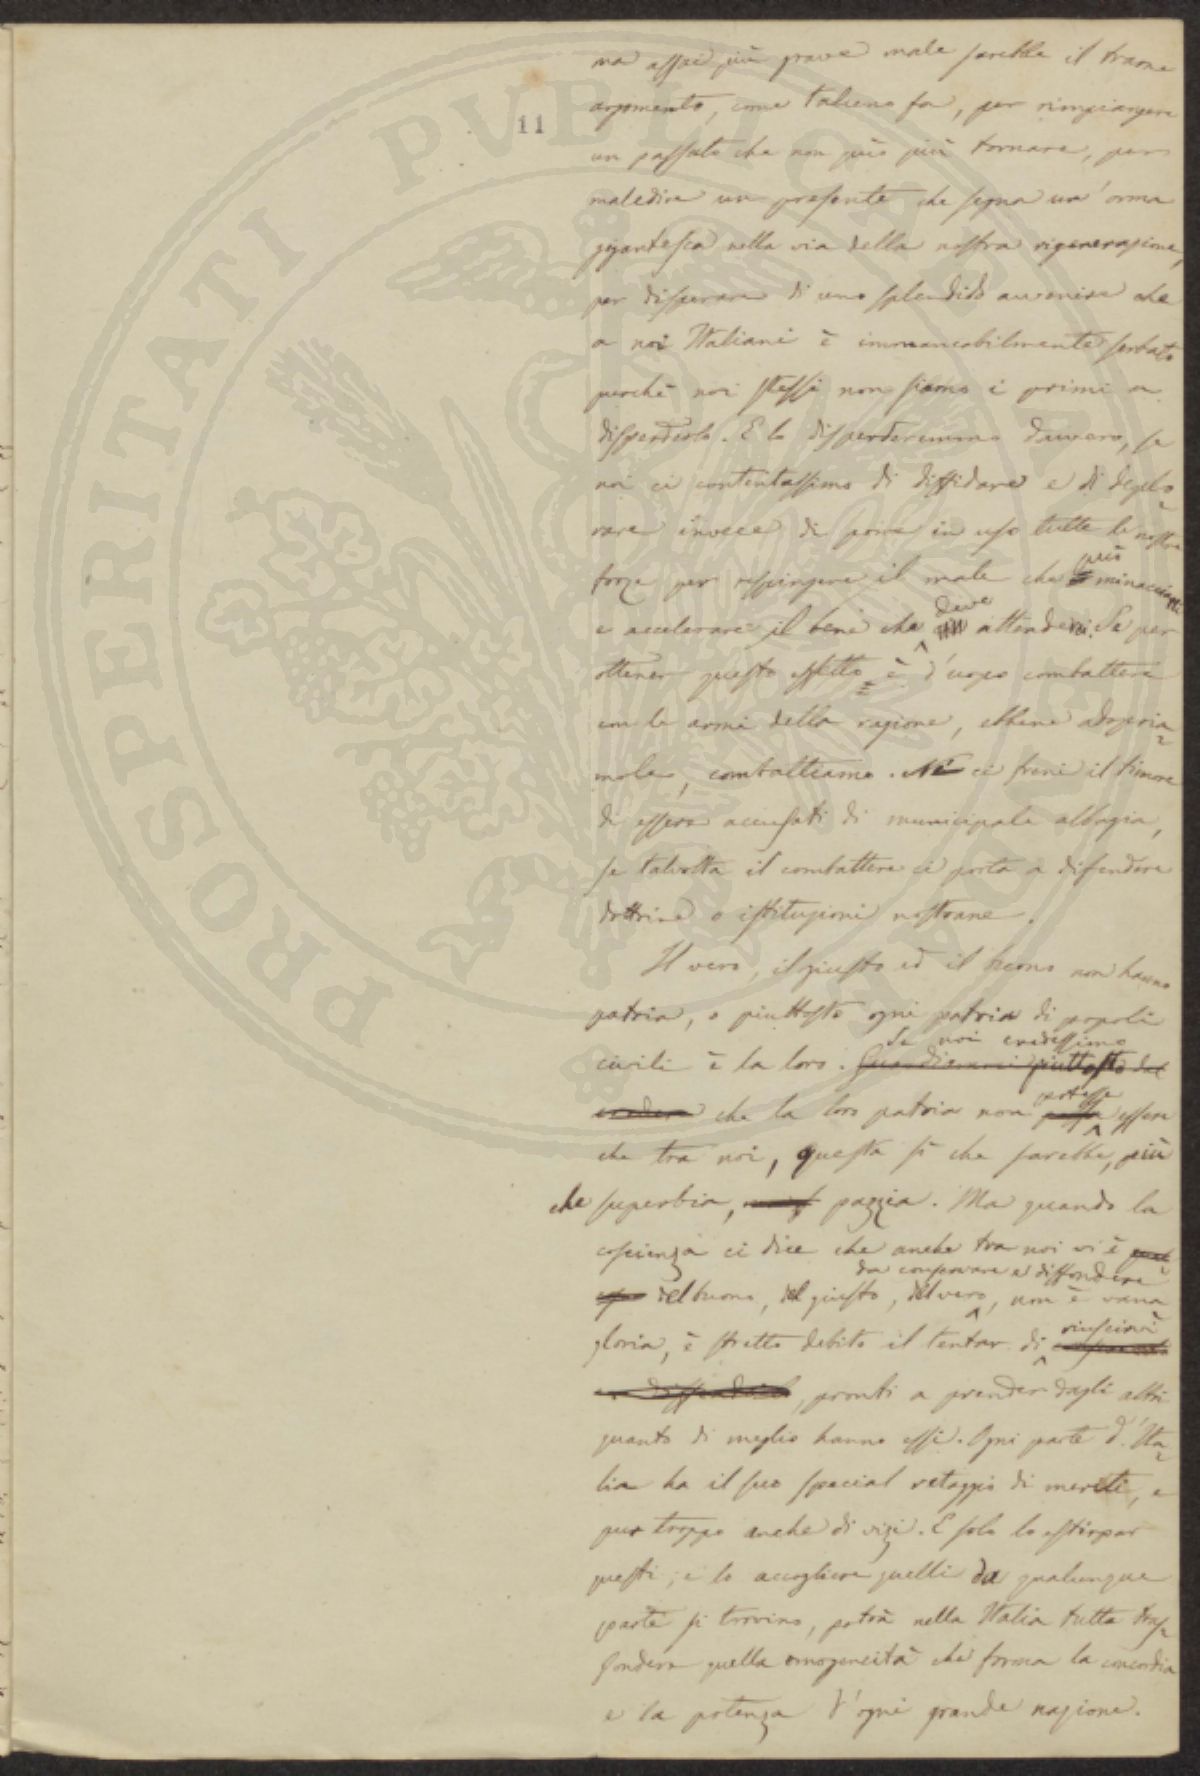 11
ma assai più grave male sarebbe il trarne
argomento, come taluno fa, per rimpiangere
un passato che non può più tornare, per
maledire un presente che segna un'orma
gigantesca nella via della nostra rigenerazione,
per disperare di uno splendido avvenire che
a noi Italiani è immancabilmente serbato
perchè noi stessi non siamo i primi a
disperderlo. E lo disperderemmo davvero, se
noi ci contentassimo di diffidare e di deplo-
rare invece di porre in uso tutte le nostre
forze per respingere il male che può minacciarci
e accelerare il bene che deve attenderci. Se per
ottener questo effetto è d'uopo combattere
con le armi della ragione, ebbene adoperia-
mole, combattiamo. Nè ci freni il timore
di essere accusati di municipale albagia,
se talvolta il combattere ci porta a difendere
dottrine o istituzioni nostrane.
Il vero, il giusto ed il buono non hanno
patria, o piuttosto ogni patria di popoli
civili è la loro. Se noi credessimo Guardiamoci piuttosto dal
credere che la loro patria non potesse possa essere
che tra noi, questa sì che sarebbe, più
che superbia, pazzia. Ma quando la
coscienza ci dice che anche tra noi vi è
del buono, del giusto, del vero, da conservare e diffondere non è vana
gloria, è stretto debito il tentar di riuscirvi
e diffonderlo, pronti a prender dagli altri
quanto di meglio hanno essi. Ogni parte d'Ita-
lia ha il suo special retaggio di meriti, e
pur troppo anche di vizi. E solo lo estirpar
questi, e lo accogliere quelli da qualunque
parte si trovino, potrà nella Italia tutta tras-
fondere quella omogeneità che forma la concordia
e la potenza d'ogni grande nazione.
PROSPERITATI PUBLICAE AUGENDAE